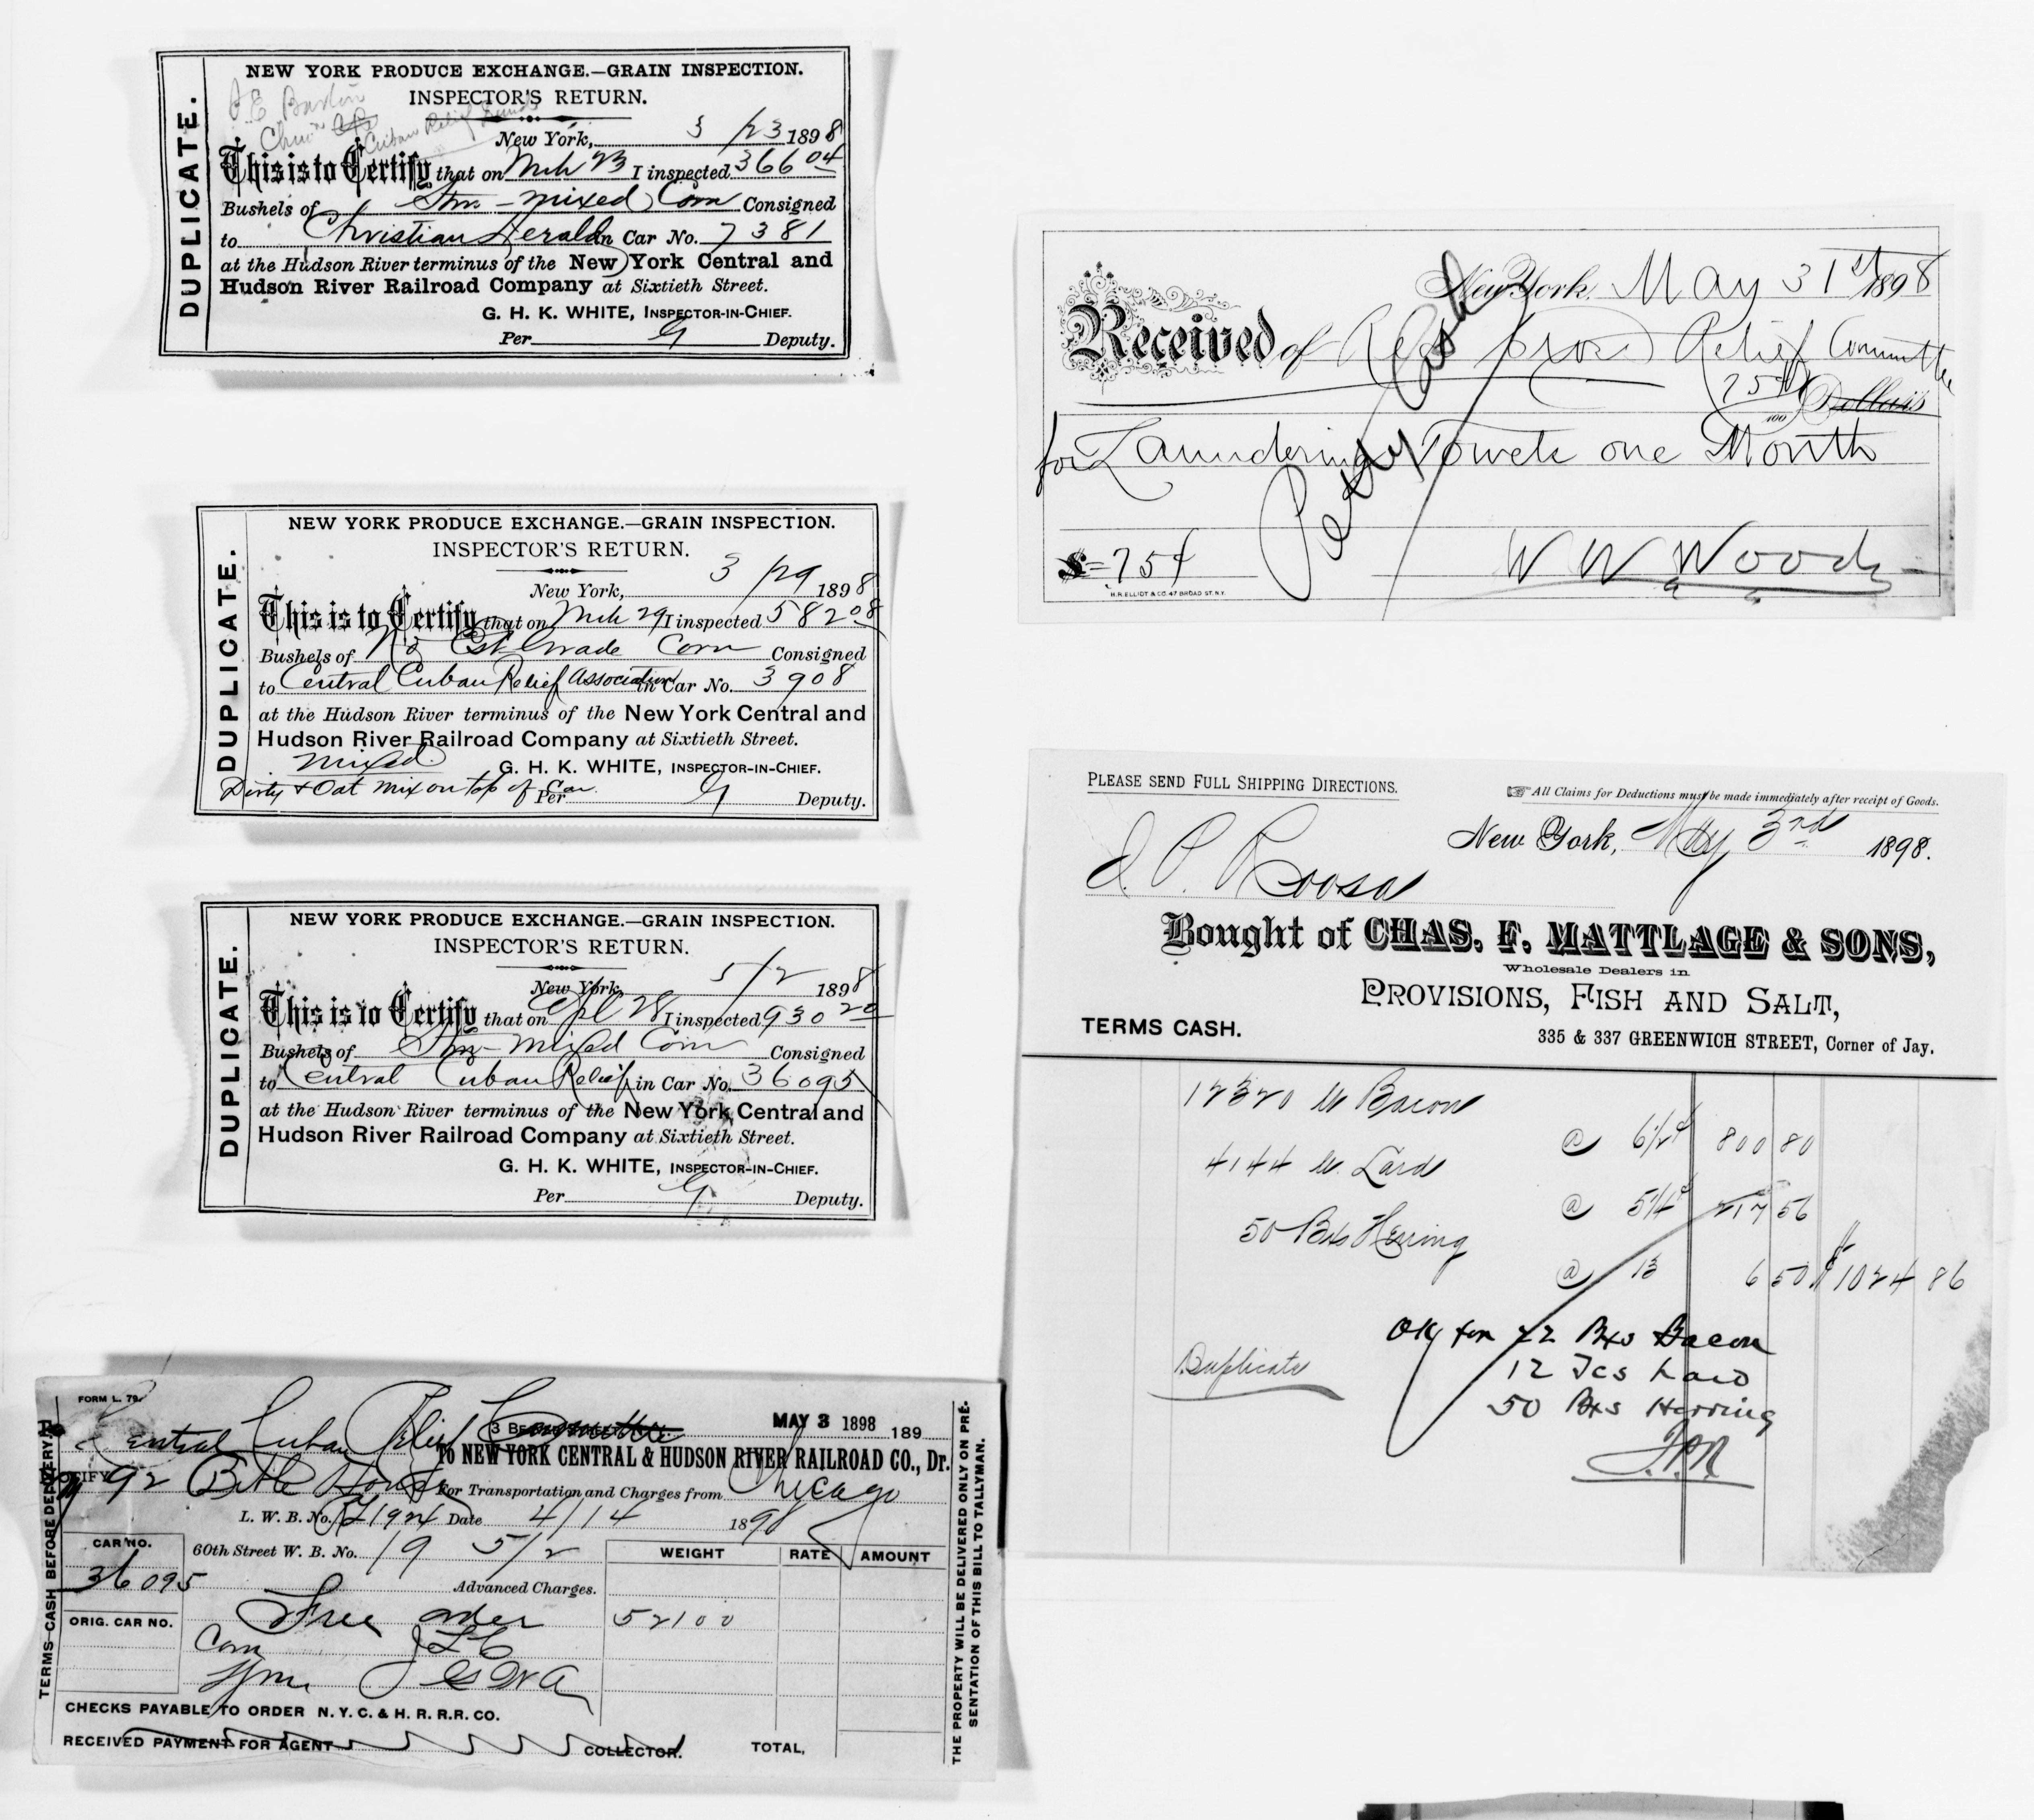 DUPLICATE.
NEW YORK PRODUCE EXCHANGE.—GRAIN INSPECTION.
INSPECTOR'S RETURN.
Cuban Relief
New York, 3/23 1898
This is to Certify that on Mch 23 I inspected 366 04
Bushels of Stm-mixed Corn Consigned
to Christian Herald in Car No. 7381
at the Hudson River terminus of the New York Central and
Hudson River Railroad Company at Sixtieth Street.
G. H. K. WHITE, INSPECTOR-IN-CHIEF.
Per Deputy.
DUPLICATE.
NEW YORK PRODUCE EXCHANGE.—GRAIN INSPECTION.
INSPECTOR'S RETURN.
New York, 3/29 1898
This is to Certify that on Mch 29 I inspected 582 08
Bushels of No Est Grade Corn Consigned
to Central Cuban Relief Association in Car No. 3908
at the Hudson River terminus of the New York Central and
Hudson River Railroad Company at Sixtieth Street.
mixed
G. H. K. WHITE, INSPECTOR-IN-CHIEF.
Dirty & Oat mix on top of Car.
Per Deputy.
DUPLICATE.
NEW YORK PRODUCE EXCHANGE.—GRAIN INSPECTION.
INSPECTOR'S RETURN.
New York, 5/2 1898
This is to Certify that on Apl 28 I inspected 930 20
Bushels of Stm-mixed Corn Consigned
to Central Cuban Relief in Car No. 36095
at the Hudson River terminus of the New York Central and
Hudson River Railroad Company at Sixtieth Street.
G. H. K. WHITE, INSPECTOR-IN-CHIEF.
Per Deputy.
FORM L. 79.
Central Cuban Relief Committee
MAY 3 1898 189
To NEW YORK CENTRAL & HUDSON RIVER RAILROAD CO., Dr.
92 Bible House
For Transportation and Charges from Chicago
L. W. B. No. 51924 Date 4/14 1898
60th Street W. B. No. 19 5/2
CAR NO.
36095
WEIGHT RATE AMOUNT
Advanced Charges.
ORIG. CAR NO.
Free order 52100
Corn
CHECKS PAYABLE TO ORDER N. Y. C. & H. R. R.R. CO.
RECEIVED PAYMENT FOR AGENT COLLECTOR. TOTAL,
TERMS CASH BEFORE DELIVERY.
THE PROPERTY WILL BE DELIVERED ONLY ON PRE-
SENTATION OF THIS BILL TO TALLYMAN.
New York, May 31st 1898
Received of Red Cross Relief Committee
75/100 Dollars
for Laundering Towels one Month
Petty Cash
$ 75¢
W W Woods
H.R. ELLIOT & CO. 47 BROAD ST. N.Y.
PLEASE SEND FULL SHIPPING DIRECTIONS.
All Claims for Deductions must be made immediately after receipt of Goods.
New York, May 3rd 1898.
J. P. Roosa
Bought of CHAS. F. MATTLAGE & SONS,
Wholesale Dealers in
PROVISIONS, FISH AND SALT,
TERMS CASH.
335 & 337 GREENWICH STREET, Corner of Jay.
12320 lb Bacon
@ 6 1/2¢ 800 80
4144 lb. Lard
@ 5 1/4¢ 217 56
50 Bxs Herring
@ 13 6 50 $1024 86
OK for 22 Bxs Bacon
12 Tcs Lard
50 Bxs Herring
Duplicate